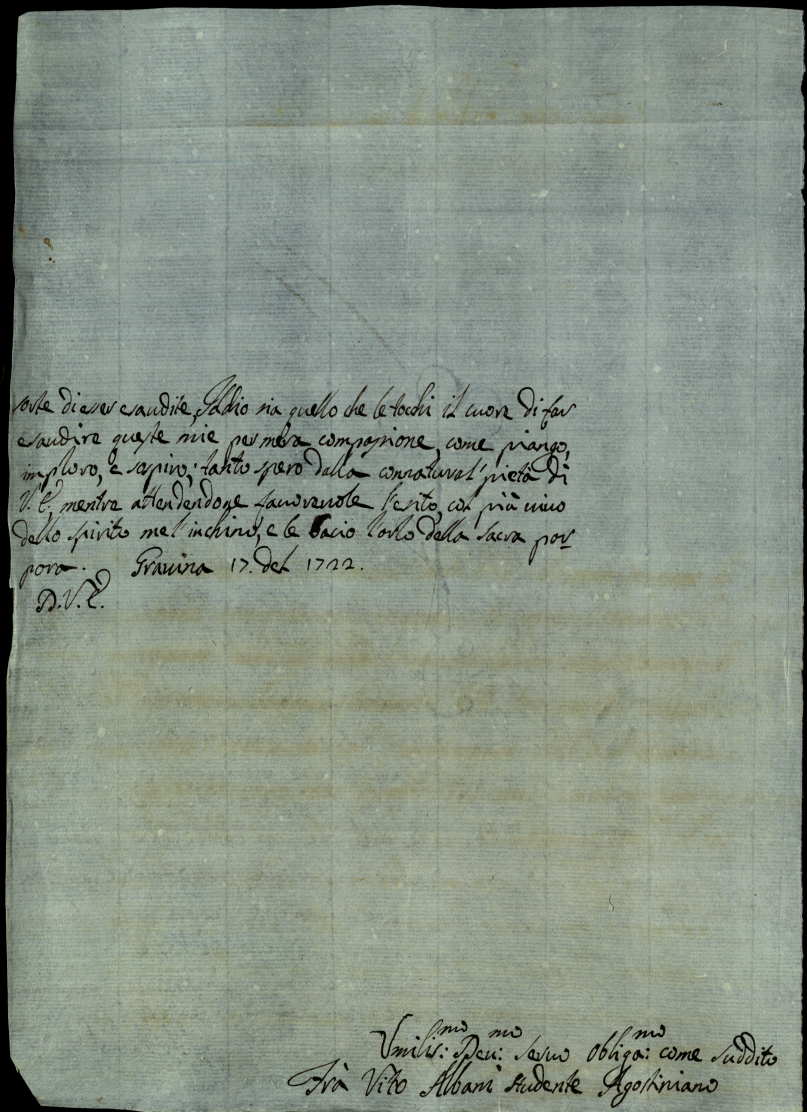 sorte di esser esaudite, Iddio sia quello che le tochi il cuore di far
esaudire queste mie per mera compassione, come piango,
imploro, e sospiro; tanto spero dalla connatural' pietà di
V. E. mentre attendendone favorevole l'esito, col più vivo
dello spirito me l'inchino, e le bacio l'orlo della sacra por-
pora. Gravina 17. del 1722.
D. V. E.
Umilis:mo Dev:mo servo obliga:mo come suddito
Frà Vito Albani studente Agostiniano